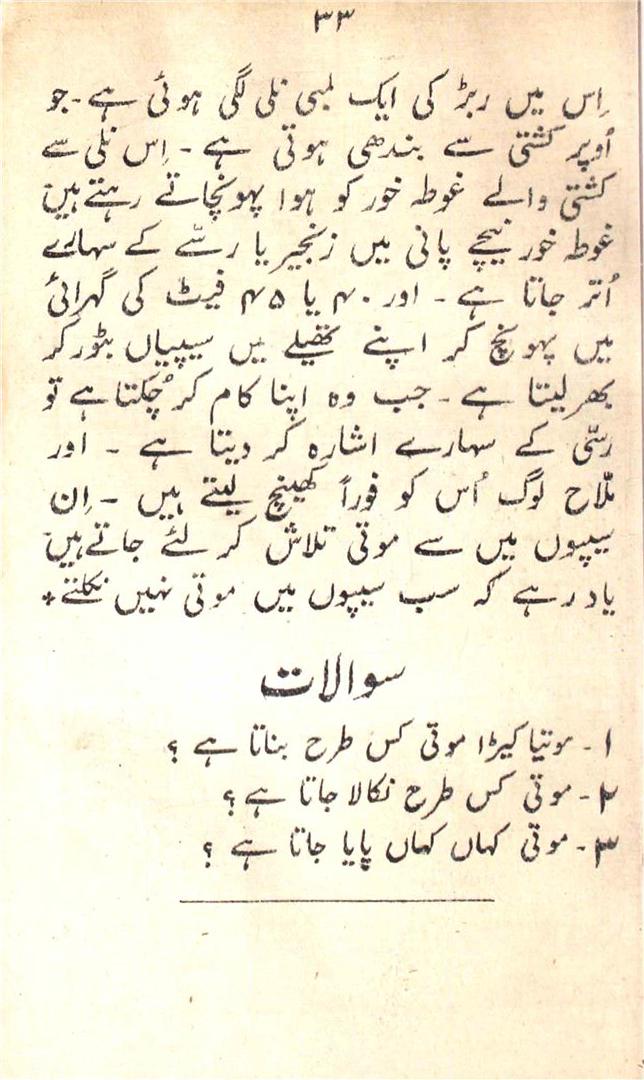 ۳۳
اِس میں ربڑ کی ایک لمبی نلی لگی ہوئی ہے۔ جو
اُوپر کشتی سے بندھی ہوتی ہے۔ اِس نلی سے
کشتی والے غوطہ خور کو ہوا پہونچاتے رہتے ہیں
غوطہ خور نیچے پانی میں زنجیر یا رسّے کے سہارے
اُتر جاتا ہے۔ اور ۴۰ یا ۴۵ فیٹ کی گہرائی
میں پہونچ کر اپنے تھیلے میں سیپیاں بٹور کر
بھر لیتا ہے۔ جب وہ اپنا کام کر چُکتا ہے تو
رسّی کے سہارے اشارہ کر دیتا ہے۔ اور
ملّاح لوگ اُس کو فوراً کھینچ لیتے ہیں۔ اِن
سیپوں میں سے موتی تلاش کر لئے جاتے ہیں
یاد رہے کہ سب سیپوں میں موتی نہیں نکلتے٭
سوالات
۱۔ موتیا کیڑا موتی کس طرح بناتا ہے ؟
۲۔ موتی کس طرح نکالا جاتا ہے ؟
۳۔ موتی کہاں کہاں پایا جاتا ہے ؟